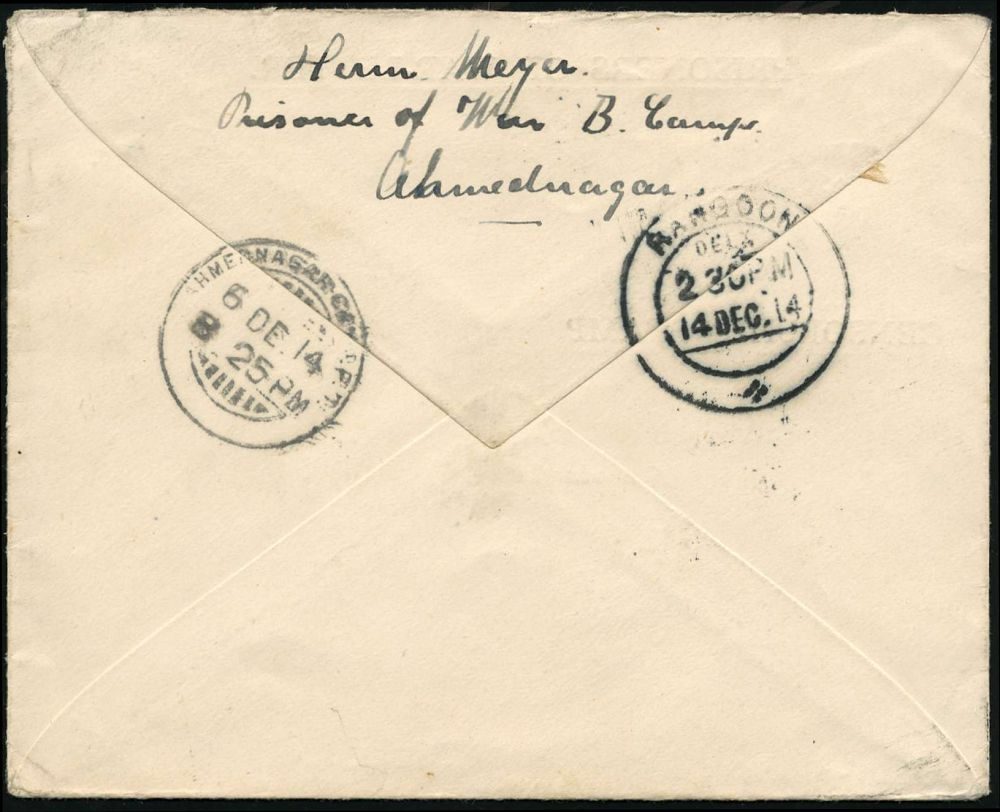 Herm. Meyer.
Prisoner of War B. Camp.
Ahmednagar.
AHMEDNAGAR
6 DE. 14
8 25 PM
RANGOON
DELY
2 30 PM
14 DEC. 14